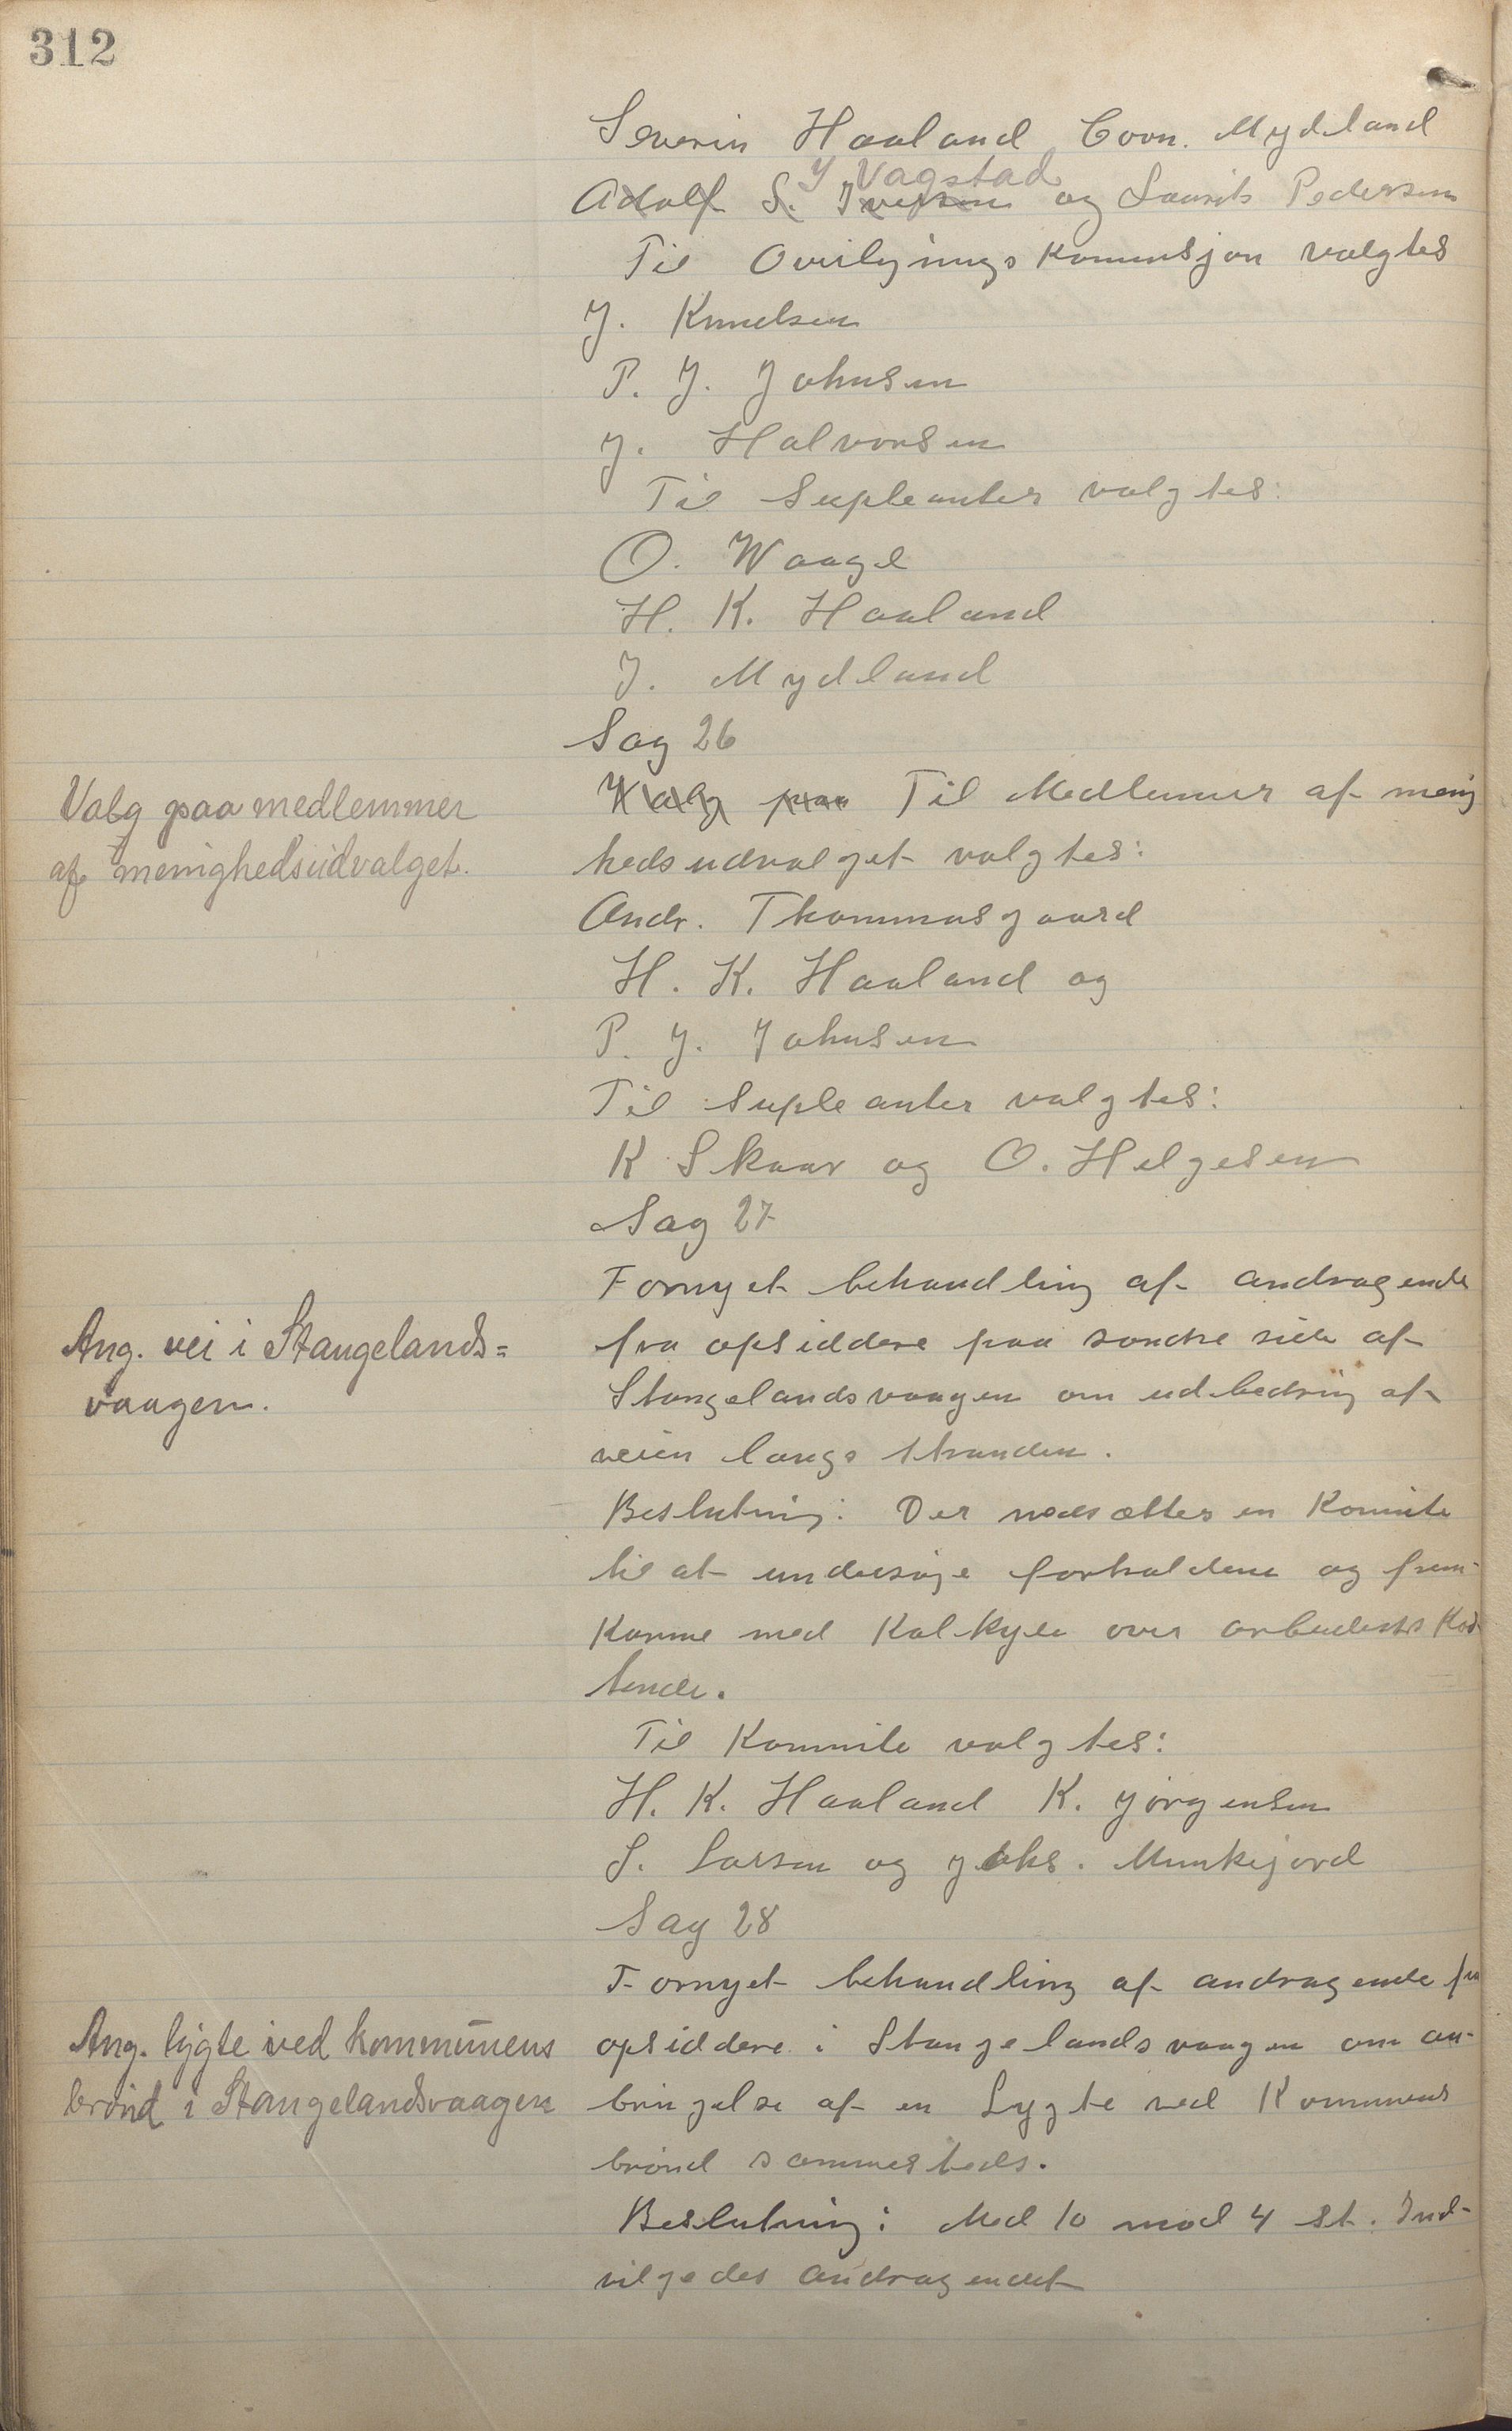 312
Severin Haaland Corn. Mydland
J Vagstad
Adolf S. Iversen og Laurits Pedersen
Til Overligningskommisjon valgtes
J. Knudsen
P. J. Johnsen
J. Halvorsen
Til Supleanter valgtes:
O. Waage
H. K. Haaland
J. Mydland
Sag 26
Valg paa medlemmer
af menighedsudvalget.
Valg paa Til Medlemmer af menig
hedsudvalget valgtes:
Andr. Thommasgaard
H. K. Haaland og
P. J. Johnsen
Til Supleanter valgtes:
K Skaar og O. Helgesen
Sag 27
Ang. vei i Stangelands=
vaagen.
Fornyet behandling af andragende
fra opsiddere paa søndre side af
Stangelandsvaagen om udbedring af
veien langs stranden.
Beslutning: Der nedsættes en Komite
til at undersøge forholdene og frem-
komme med Kalkyle over arbeidets Kos
tende.
Til Kommite valgtes:
H. K. Haaland K. Jørgensen
S. Larsen og Johs. Munkejord
Sag 28
Ang. lygte ved kommunens
brønd i Stangelandsvaagen
Fornyet behandling af andragende fra
opsiddere i Stangelandsvaagen om an-
bringelse af en Lygte ved Kommunens
brønd sammesteds.
Beslutning: Med 10 mod 4 st. Ind-
vilgedes andragendet